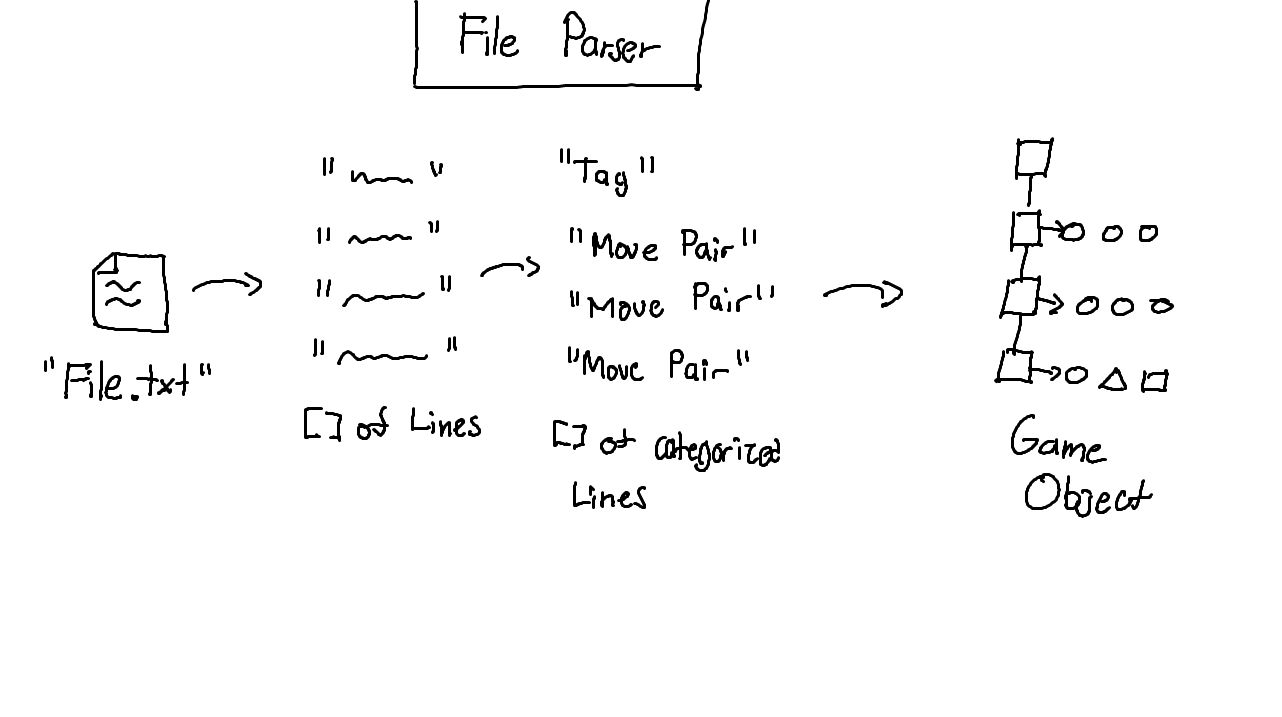 File Parser
"File.txt"
" "
" "
" "
" "
[] of Lines
"Tag"
"Move Pair"
"Move Pair"
"Move Pair"
[] of categorized
Lines
Game
Object